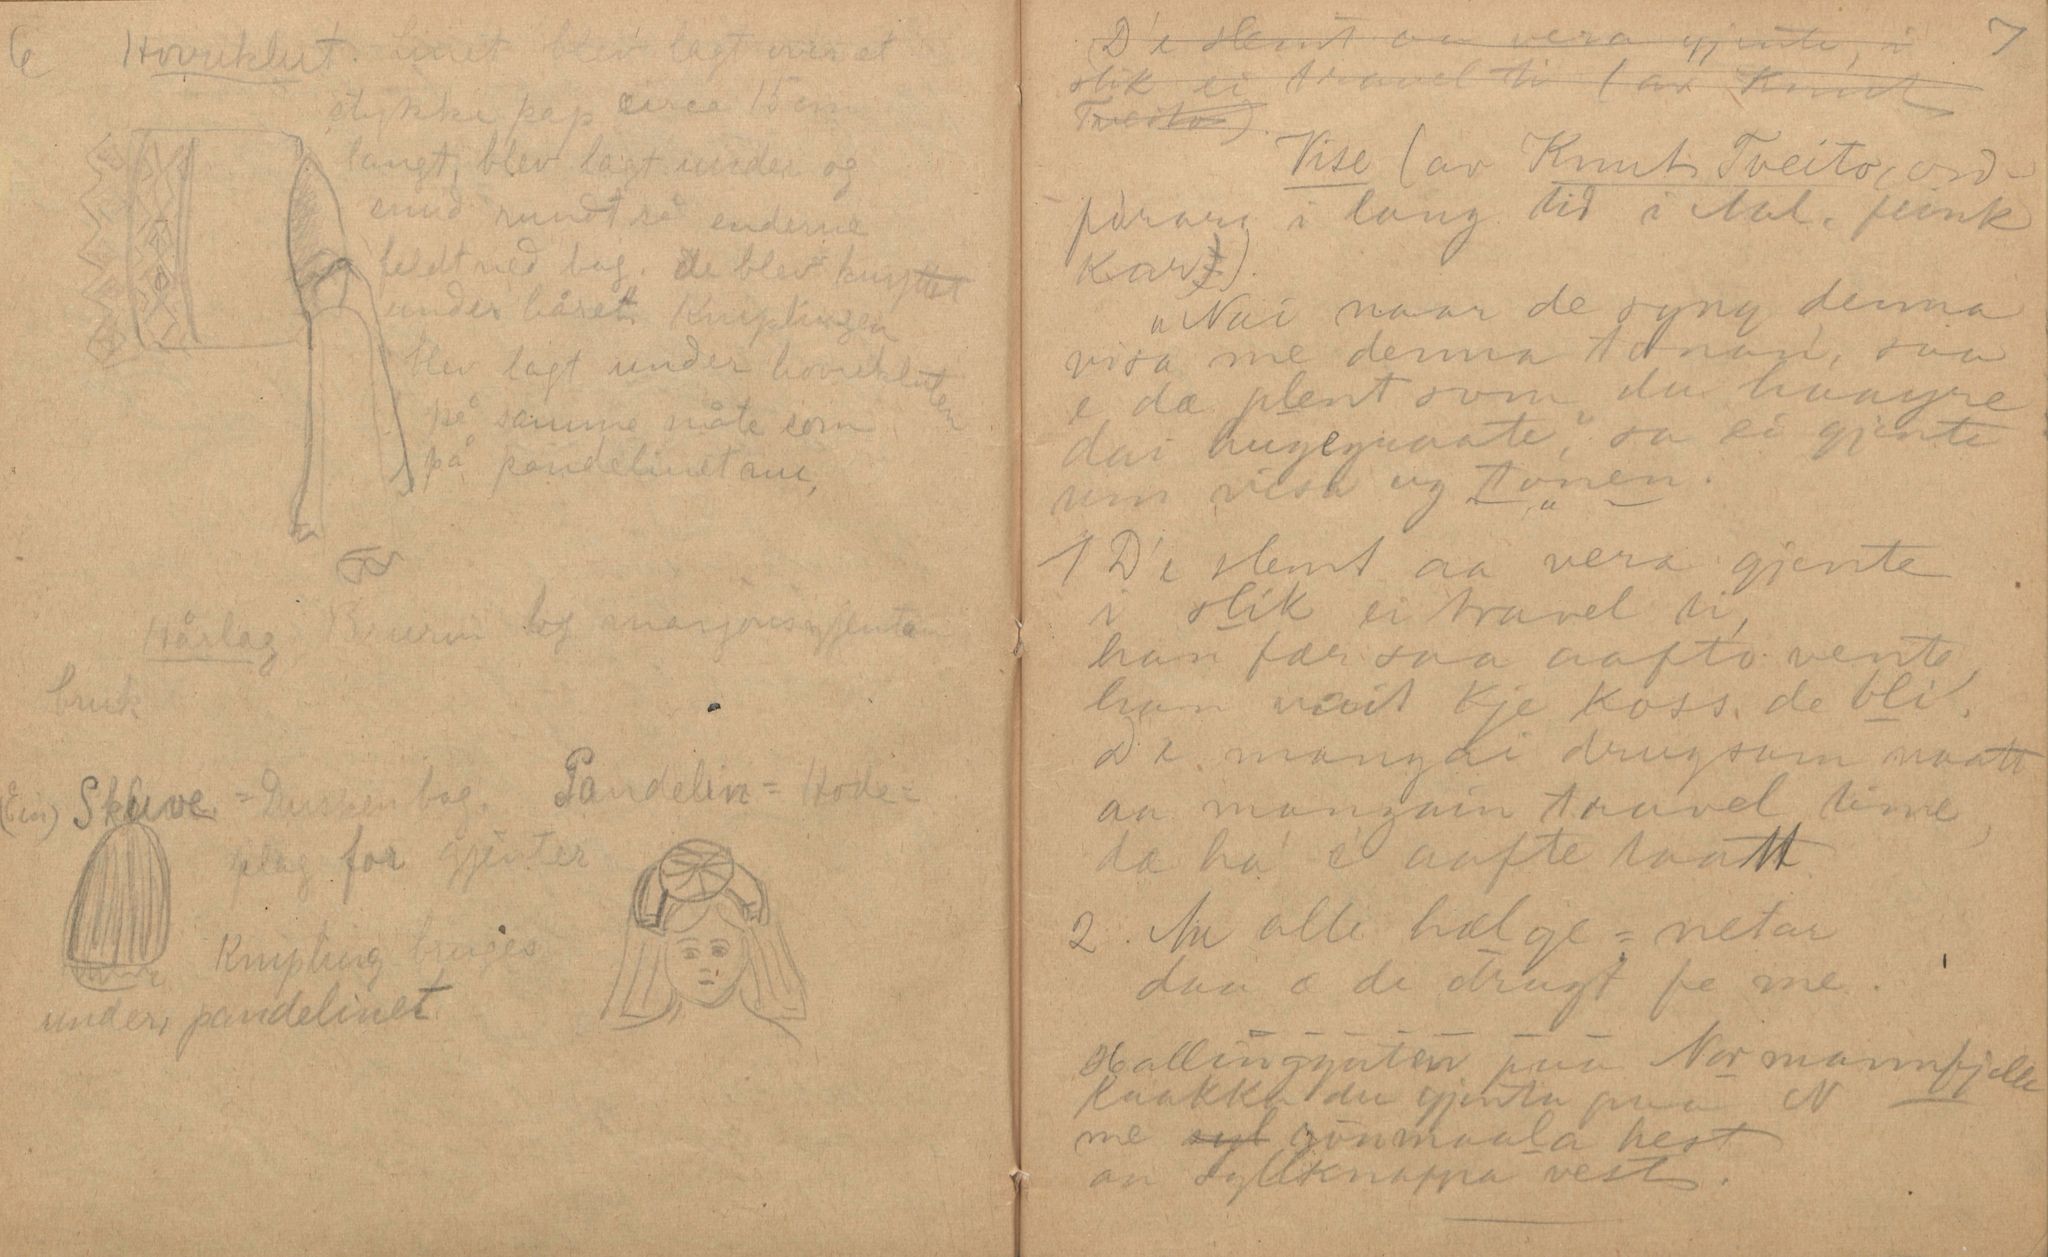 6
Hovuklut. Linet blev lagt over et
stykke pap circa 15 cm
langt, blev lagt under og
snud rundt så enderne
feldt ned bag. de blev knyttet
under håret. Kniplingen
blev lagt under hovukluten
på samme måte som
på pandelinet
Hårlag Brurin og
bruk
(Ein) Skuve. = Dusken bag. Pandelin = Hode=
plag for gjenter
Knipling bruges
under, pandelinet.
7
D'e slemt aa vera gjente, i
slik ei travel ti (av Knut
Tveito).
Vise (av Knut Tveito, ord-
førara i lang tid i Aal, feink
Kar).
„Nai naar de syng denna
visa me denna tonan, saa
e dæ plent som du haayre
dai augequaate," sa ei gjente
um visa og tonen.
1 D'e slemt aa vera gjente
i slik ei travel ti,
han fær saa aafto vente,
han vait kje koss de bli'.
D'e mangai drugsam naatt
aa mangain travel time,
dæ ha' e aafte taatt
2. Au alle hælge = netar
daa æ de drugt fe me.
Hallingguten paa Normannfjelle
Kaakka du gjenta paa N
me syl gonmaala hest
aa syllknappa vest.